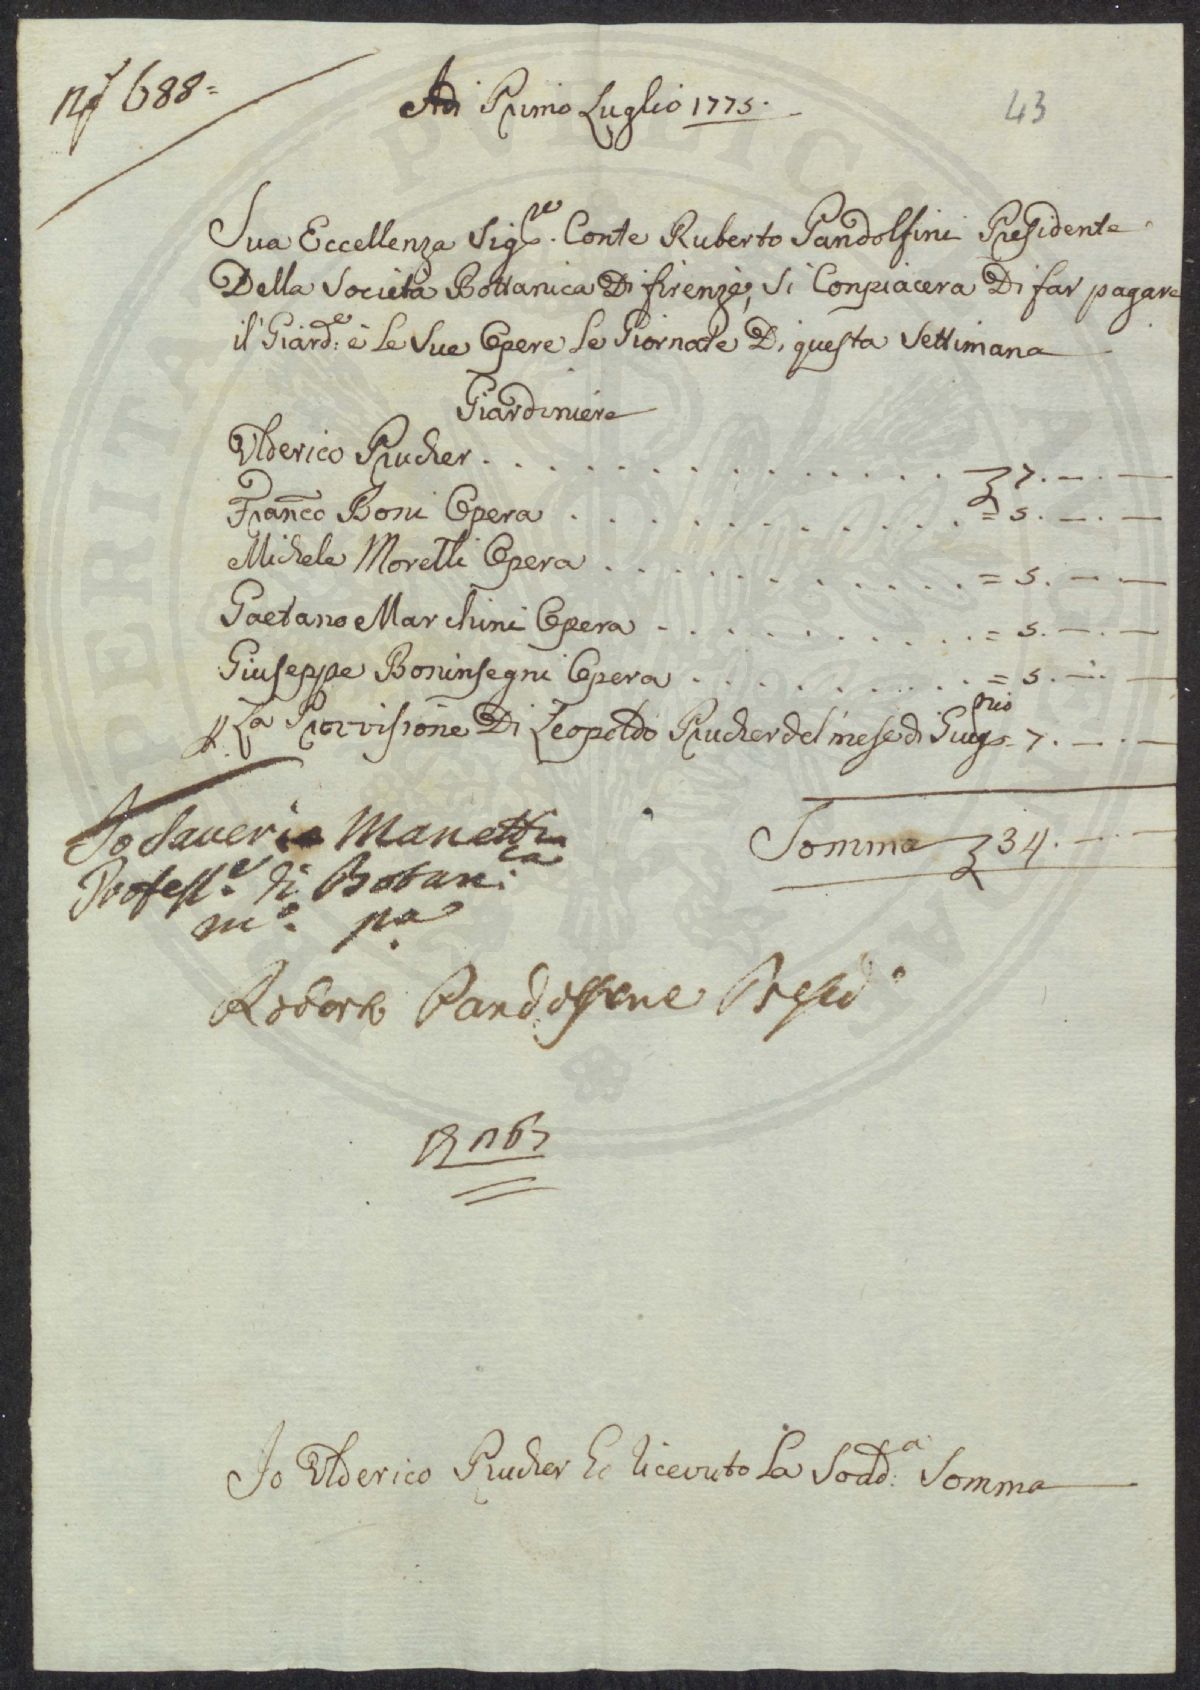 N.º 688=
Adi Primo Luglio 1775.
43
Sua Eccellenza Sig.re Conte Ruberto Pandolfini Presidente
Della Società Bottanica Di firenze, si Conpiacera Di far pagare
il Giard.e e Le Sue Opere Le Giornate Di questa Settimana
Giardiniere
Ulderico Prucher . . . . . . . . . . . . 7. — . —
Franco Boni Opera . . . . . . . . . . . = 5. — . —
Michele Moretti Opera . . . . . . . . . . = 5. — . —
Gaetano Marchini Opera . . . . . . . . . = 5. — . —
Giuseppe Boninsegni Opera . . . . . . . . = 5. — . —
La Provisione Di Leopoldo Prucher del mese di Giug.nio = 7. — . —
Somma 34. — . —
Io Saverio Manetti
Profess.e di Botani.ca
m.o p.a
Roberto Pandolfini Presid.e
Io Ulderico Prucher Ho ricevuto La Sodd.a Somma
PERITALE PVBLICA